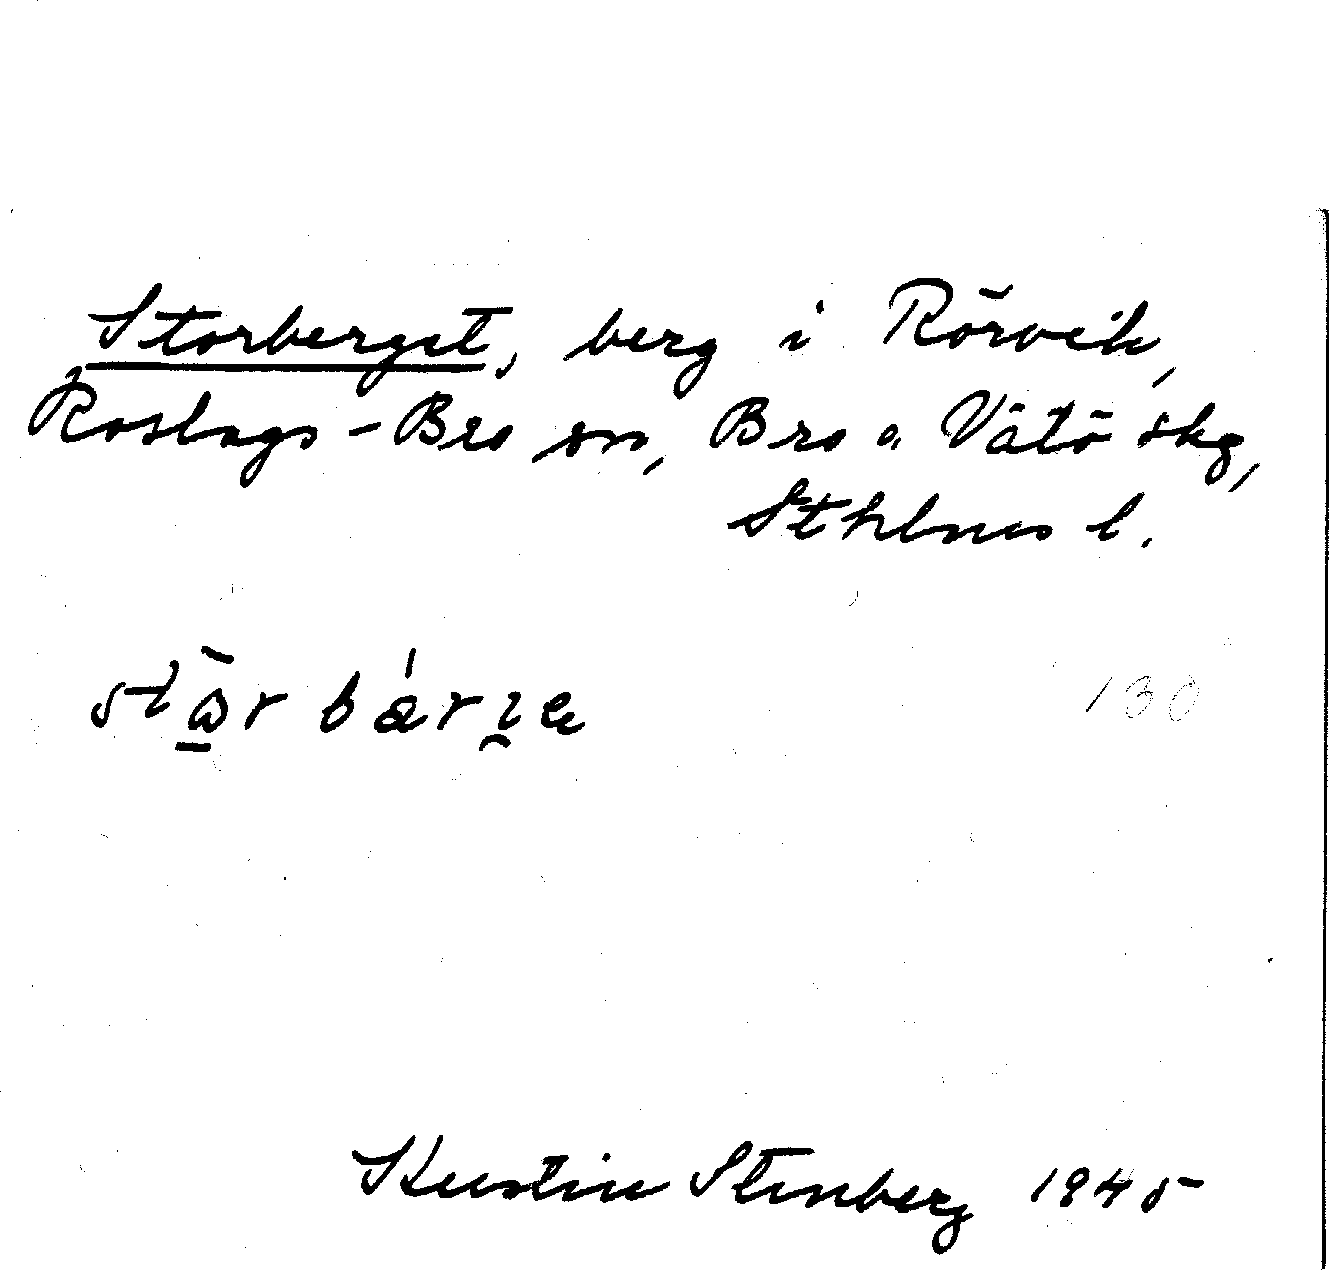 Storberget, berg i Rörvik,
Roslags-Bro sn, Bro o. Vätö skg,
Sthlms l.
130
Kerstin Stenberg 1945